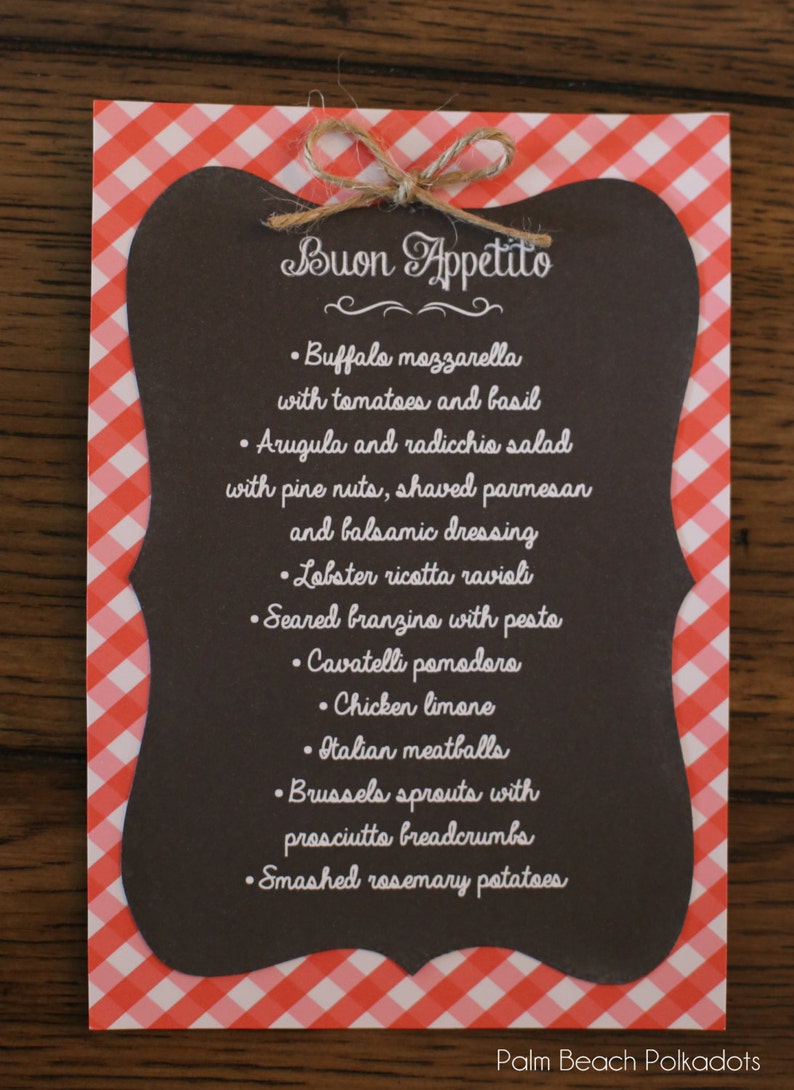 Buon Appetito
• Buffalo mozzarella
with tomatoes and basil
• Arugula and radicchio salad
with pine nuts, shaved parmesan
and balsamic dressing
• Lobster ricotta ravioli
• Seared branzino with pesto
• Cavatelli pomodoro
• Chicken limone
• Italian meatballs
• Brussels sprouts with
prosciutto breadcrumbs
• Smashed rosemary potatoes
Palm Beach Polkadots